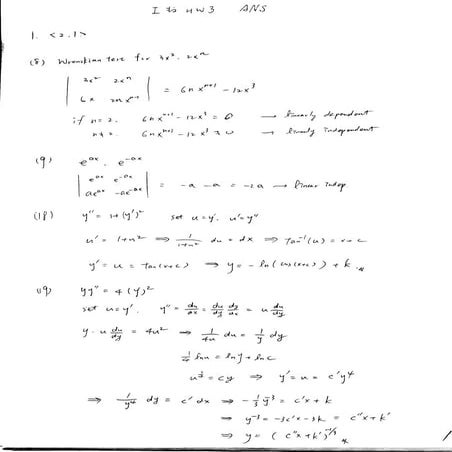 HW3 ANS
1. <2.1>
(8) Wronskian test for 3x², 2xⁿ
| 3x² 2xⁿ |
| 6x 2nxⁿ⁻¹ | = 6nxⁿ⁺¹ - 12x³
if n=2. 6nxⁿ⁺¹ - 12x³ = 0 → linearly dependent
n≠2. 6nxⁿ⁺¹ - 12x³ ≠ 0 → linearly independent
(9) e^{ax}, e^{-ax}
| e^{ax} e^{-ax} |
| ae^{ax} -ae^{-ax} | = -a - a = -2a → linear indep
(18) y'' = 1+(y')² set u=y'. u'=y''
u' = 1+u² ⇒ 1/(1+u²) du = dx ⇒ tan⁻¹(u) = x+c
y' = u = tan(x+c) ⇒ y = - ln(cos(x+c)) + k
19) yy'' = 4(y')²
set u=y'. y'' = du/dx = du/dy dy/dx = u du/dy
y·u du/dy = 4u² ⇒ 1/4u du = 1/y dy
1/4 ln u = ln y + ln c
u^{1/4} = cy ⇒ y' = u = c'y⁴
⇒ 1/y⁴ dy = c' dx ⇒ -1/3 y⁻³ = c'x + k
⇒ y⁻³ = -3c'x - 3k = c''x + k'
⇒ y = (c''x + k')^{-1/3}